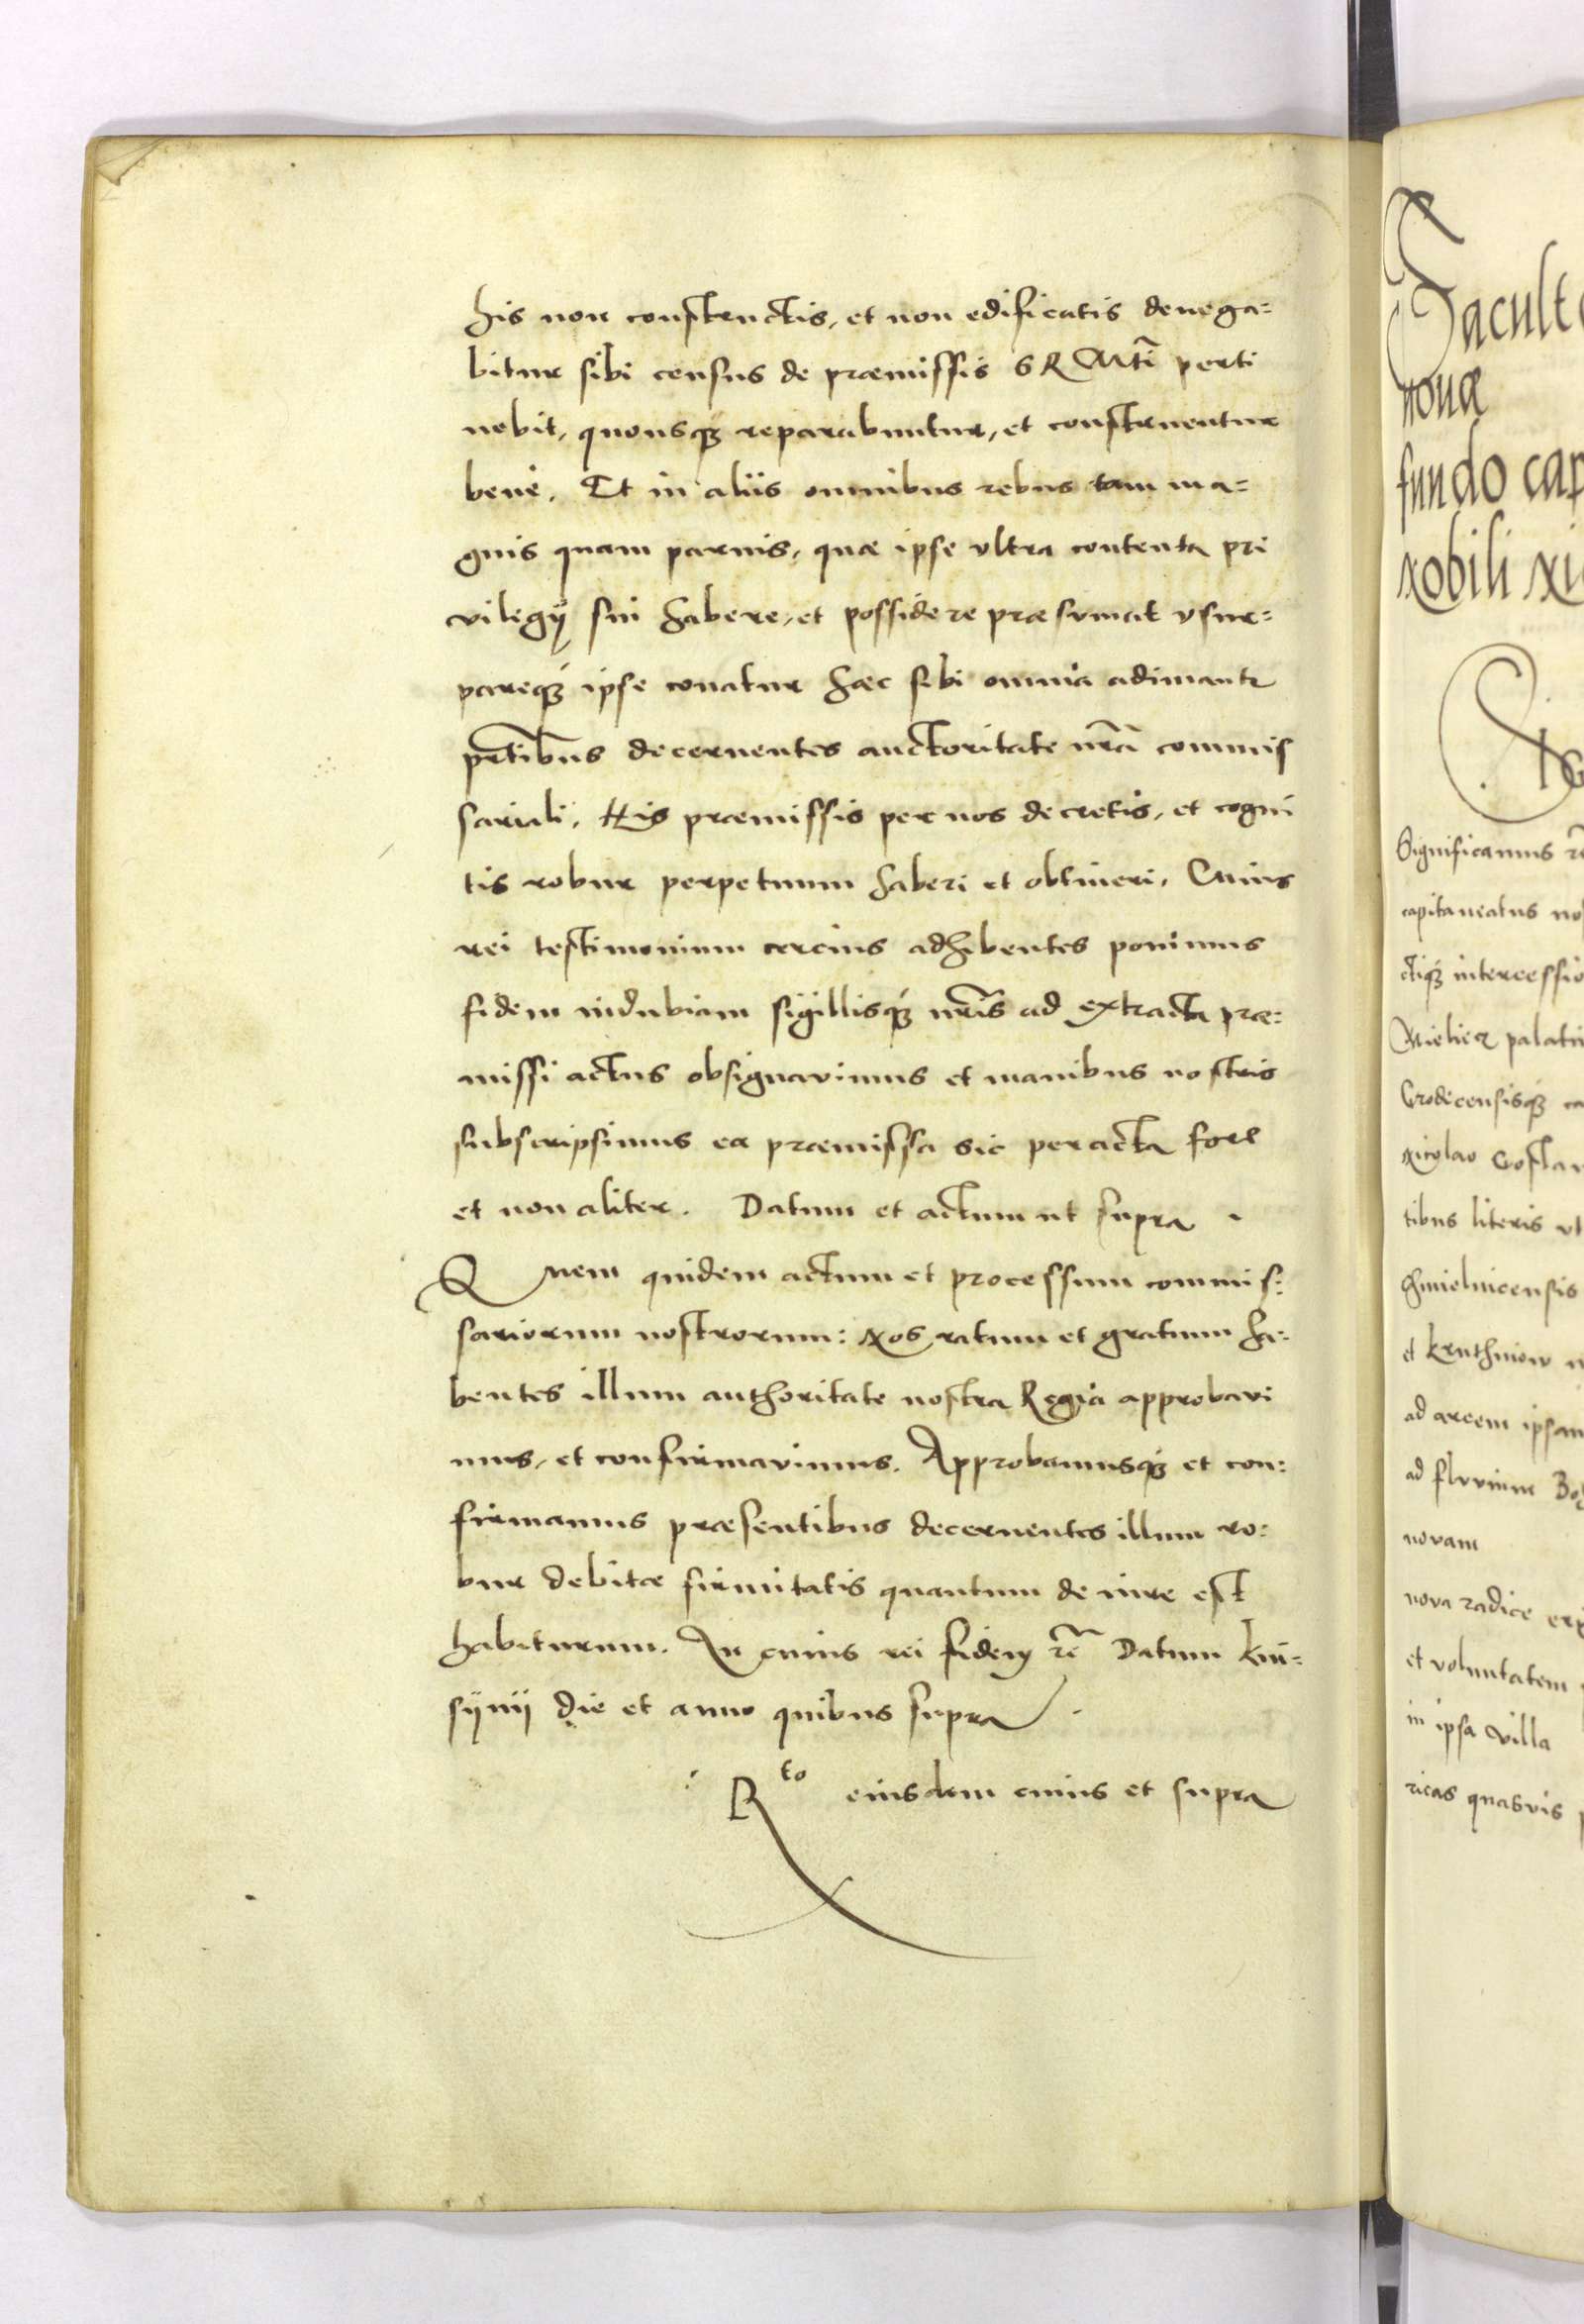 his non constructis, et non edificatis denega=
bitur sibi census de præmissis S R Mti perti
nebit, quousq3 reparabuntur, et construentur
bene. Et in aliis omnibus rebus tam ma=
gnis quam parvis, quæ ipse ultra contenta pri
vilegij sui habere, et possidere præsumat usur=
pareq3 ipse conatur hæc sibi omnia adimantr
pntibus decernentes auctoritate nra commis
sariali. His præmissis per nos decretis, et cogni
tis robur perpetuum haberi et obtineri. Cuius
rei testimonium cercius adhibentes ponimus
fidem indubiam sigillisq3 nris ad extracta præ=
missi actus obsignavimus et manibus nostris
subscripsimus ea præmissa sic peracta fore
et non aliter. Datum et actum ut supra.
Quem quidem actum et processum commis:
sariorum nostrorum: Nos ratum et gratum ha:
bentes illum authoritate nostra Regia approbavi
mus, et confirmavimus. Approbamusq3 et con:
firmamus præsentibus decernentes illum ro:
bur debitæ firmitatis quantum de iure est
habiturum. In cuius rei fidem rc Datum kni=
sijnij die et anno quibus supra.
Rto eiusdem cuius et supra
Facult
nouæ
fundo cap
Nobili Ni
Significamus
capitaneatus no
ctiq3 intercessio
Mieliecz palati
Grodecensisq3 ca
Nicolao
tibus literis vt
Chmielnicensis
et
ad arcem ipsam
ad fluvium Bo
novam
nova radice
et voluntatem
in ipsa villa
ricas quasvis